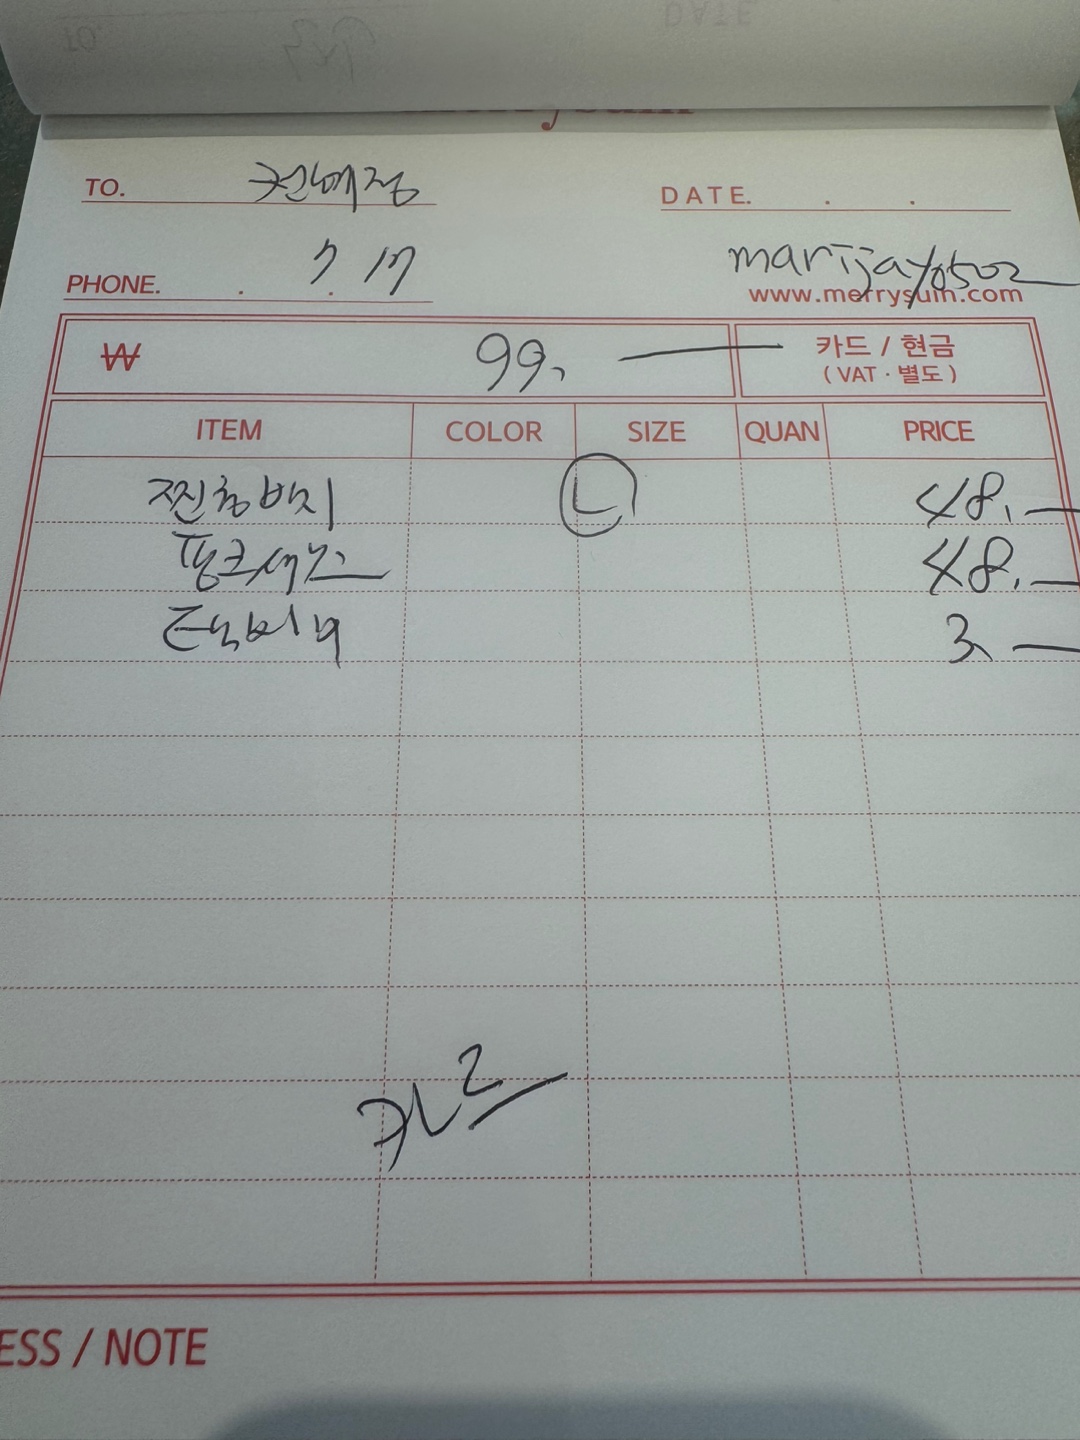 TO. 권예정
DATE. . .
PHONE. . . 7 17
marijay0502
www.merrysuin.com
₩ 99, — 카드 / 현금
(VAT · 별도)
ITEM COLOR SIZE QUAN PRICE
찐청바지 L 48. —
핑크셔츠 48. —
택배비 3. —
ESS / NOTE